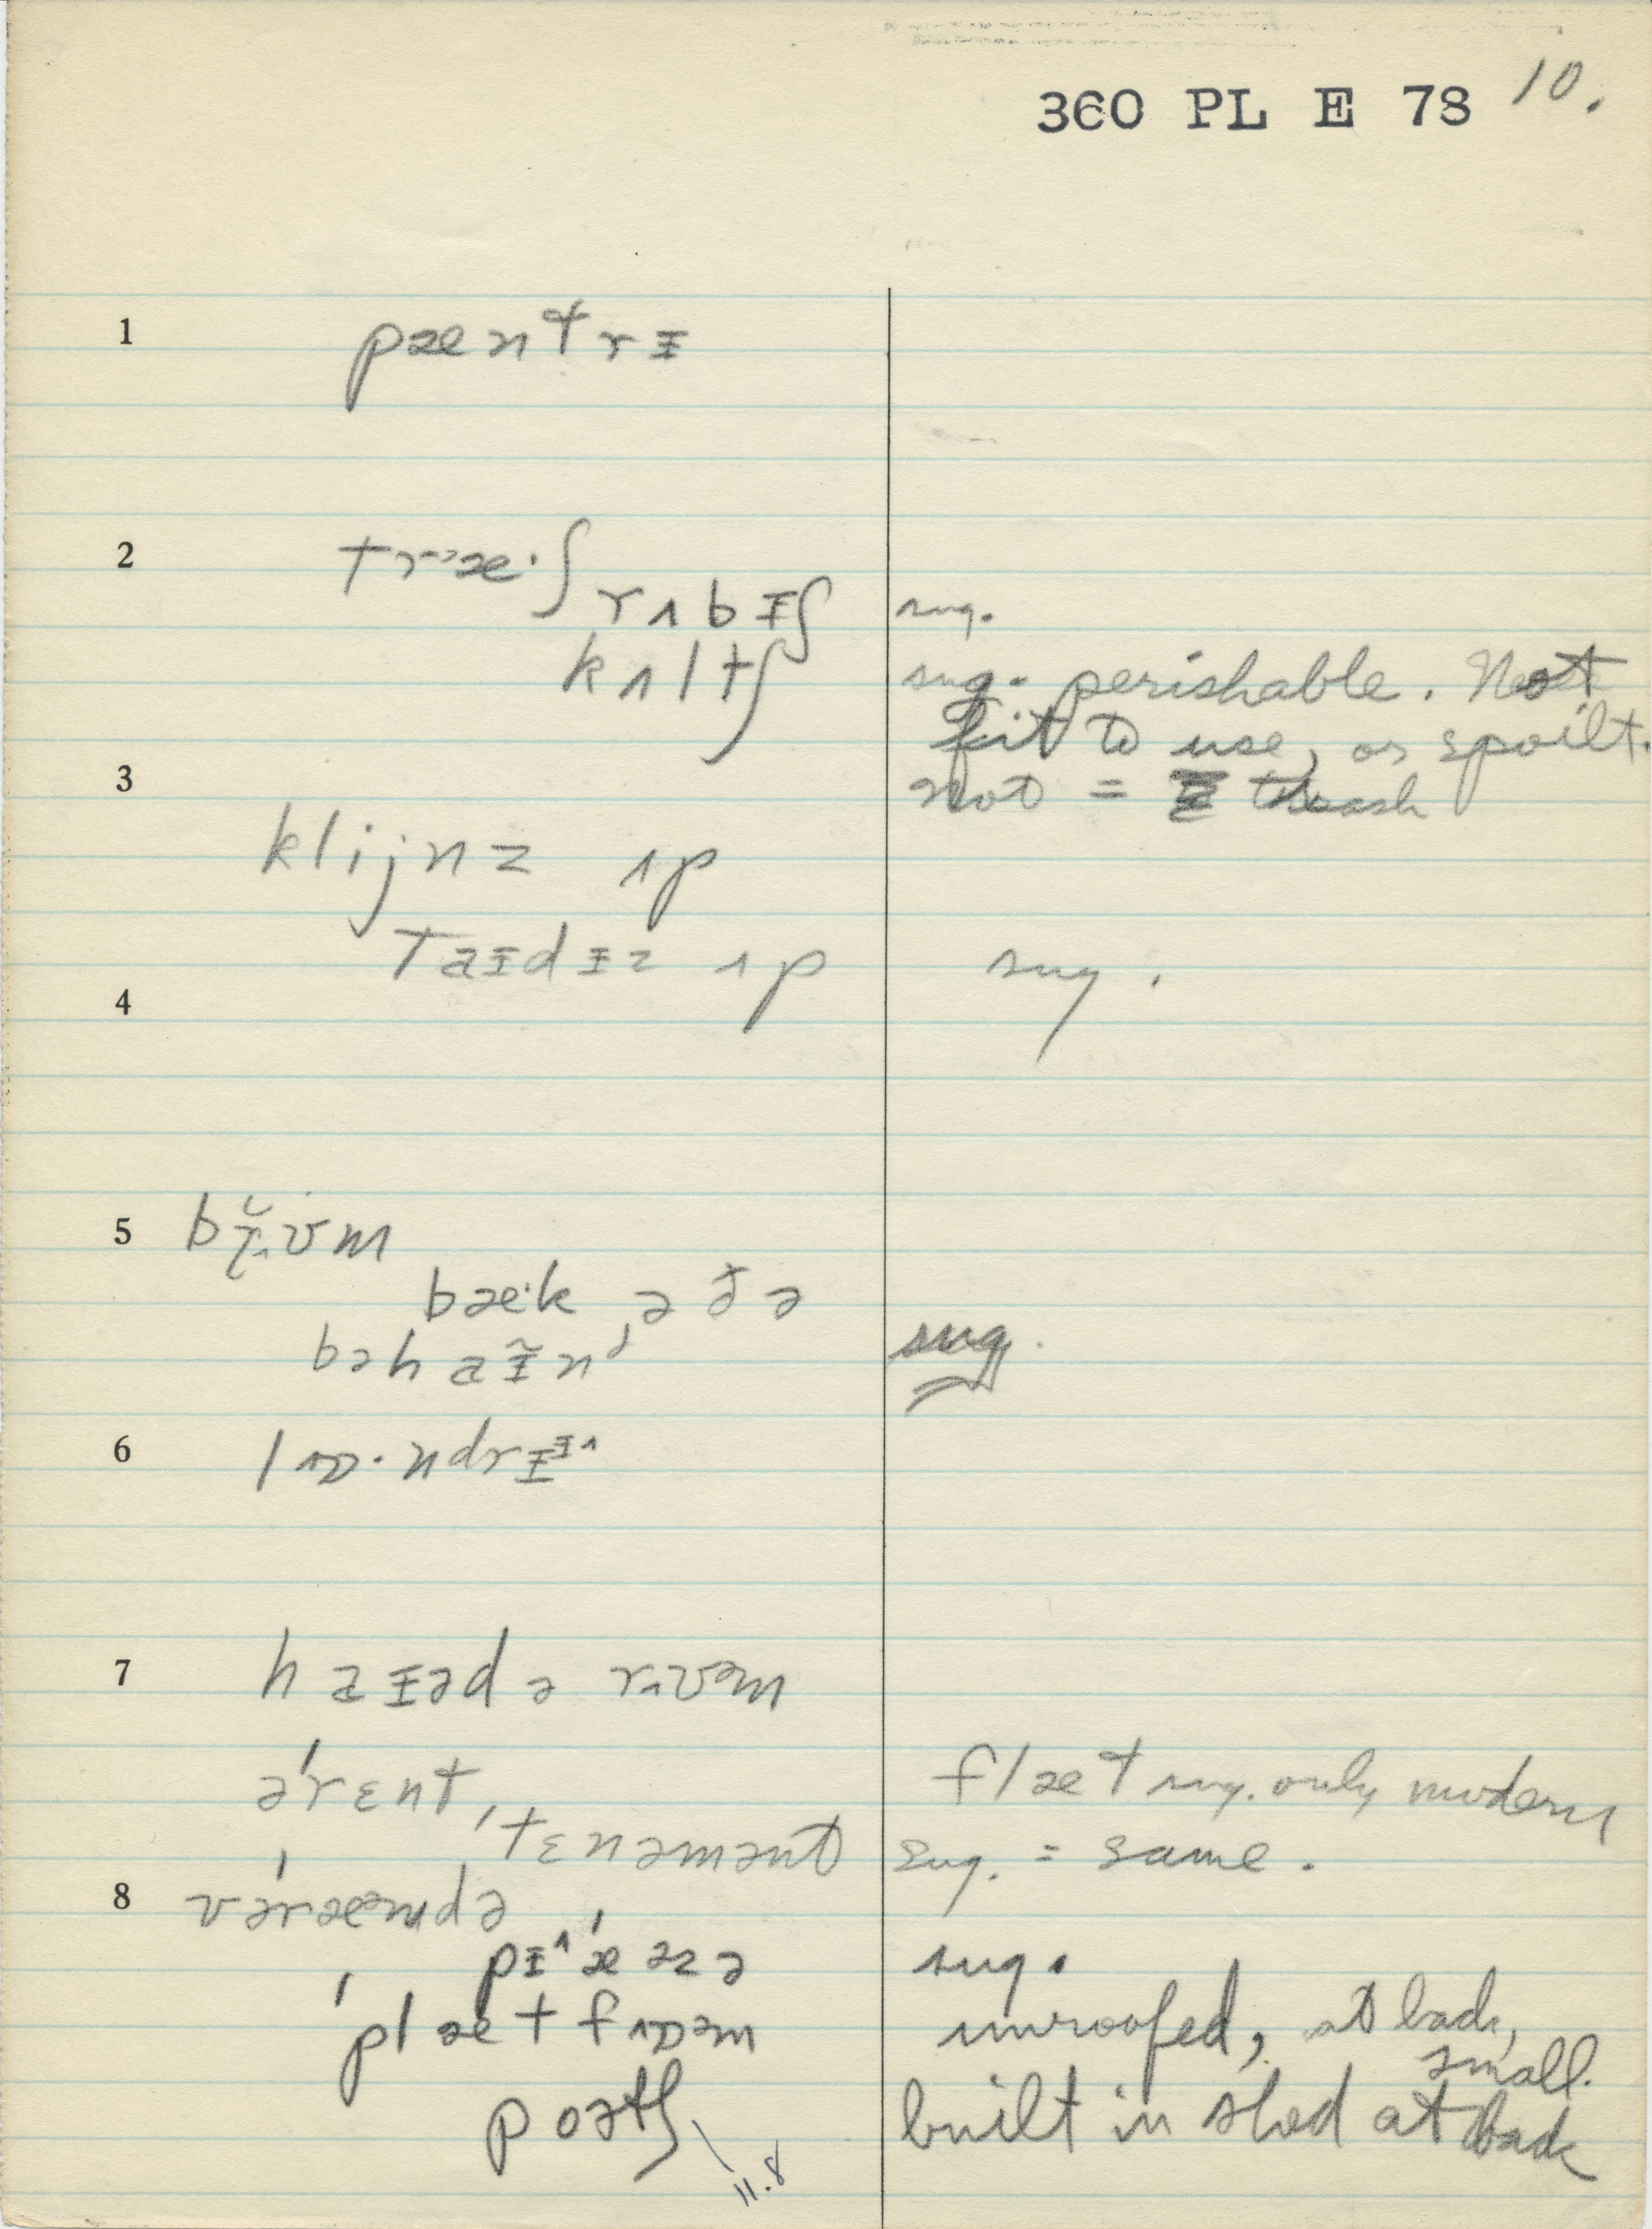 360 PL E 78 10.
1 pæntrɪ
2 træ·ʃ
rʌbɪʃ sug.
kʌltʃ sug. perishable. Not
fit to use, or spoilt.
3 not = trash
klijnz ʌp
taɪdɪz ʌp sug.
4
5
bæ·k ə ðə
bəhaɪ̃nd sug.
6
7
ərɛnt, flæt sug. only modern
tɛnəmənt sug. = same.
8 vəræəndə
sug.
unroofed, at back,
small.
poətʃ built in shed at back
11.8